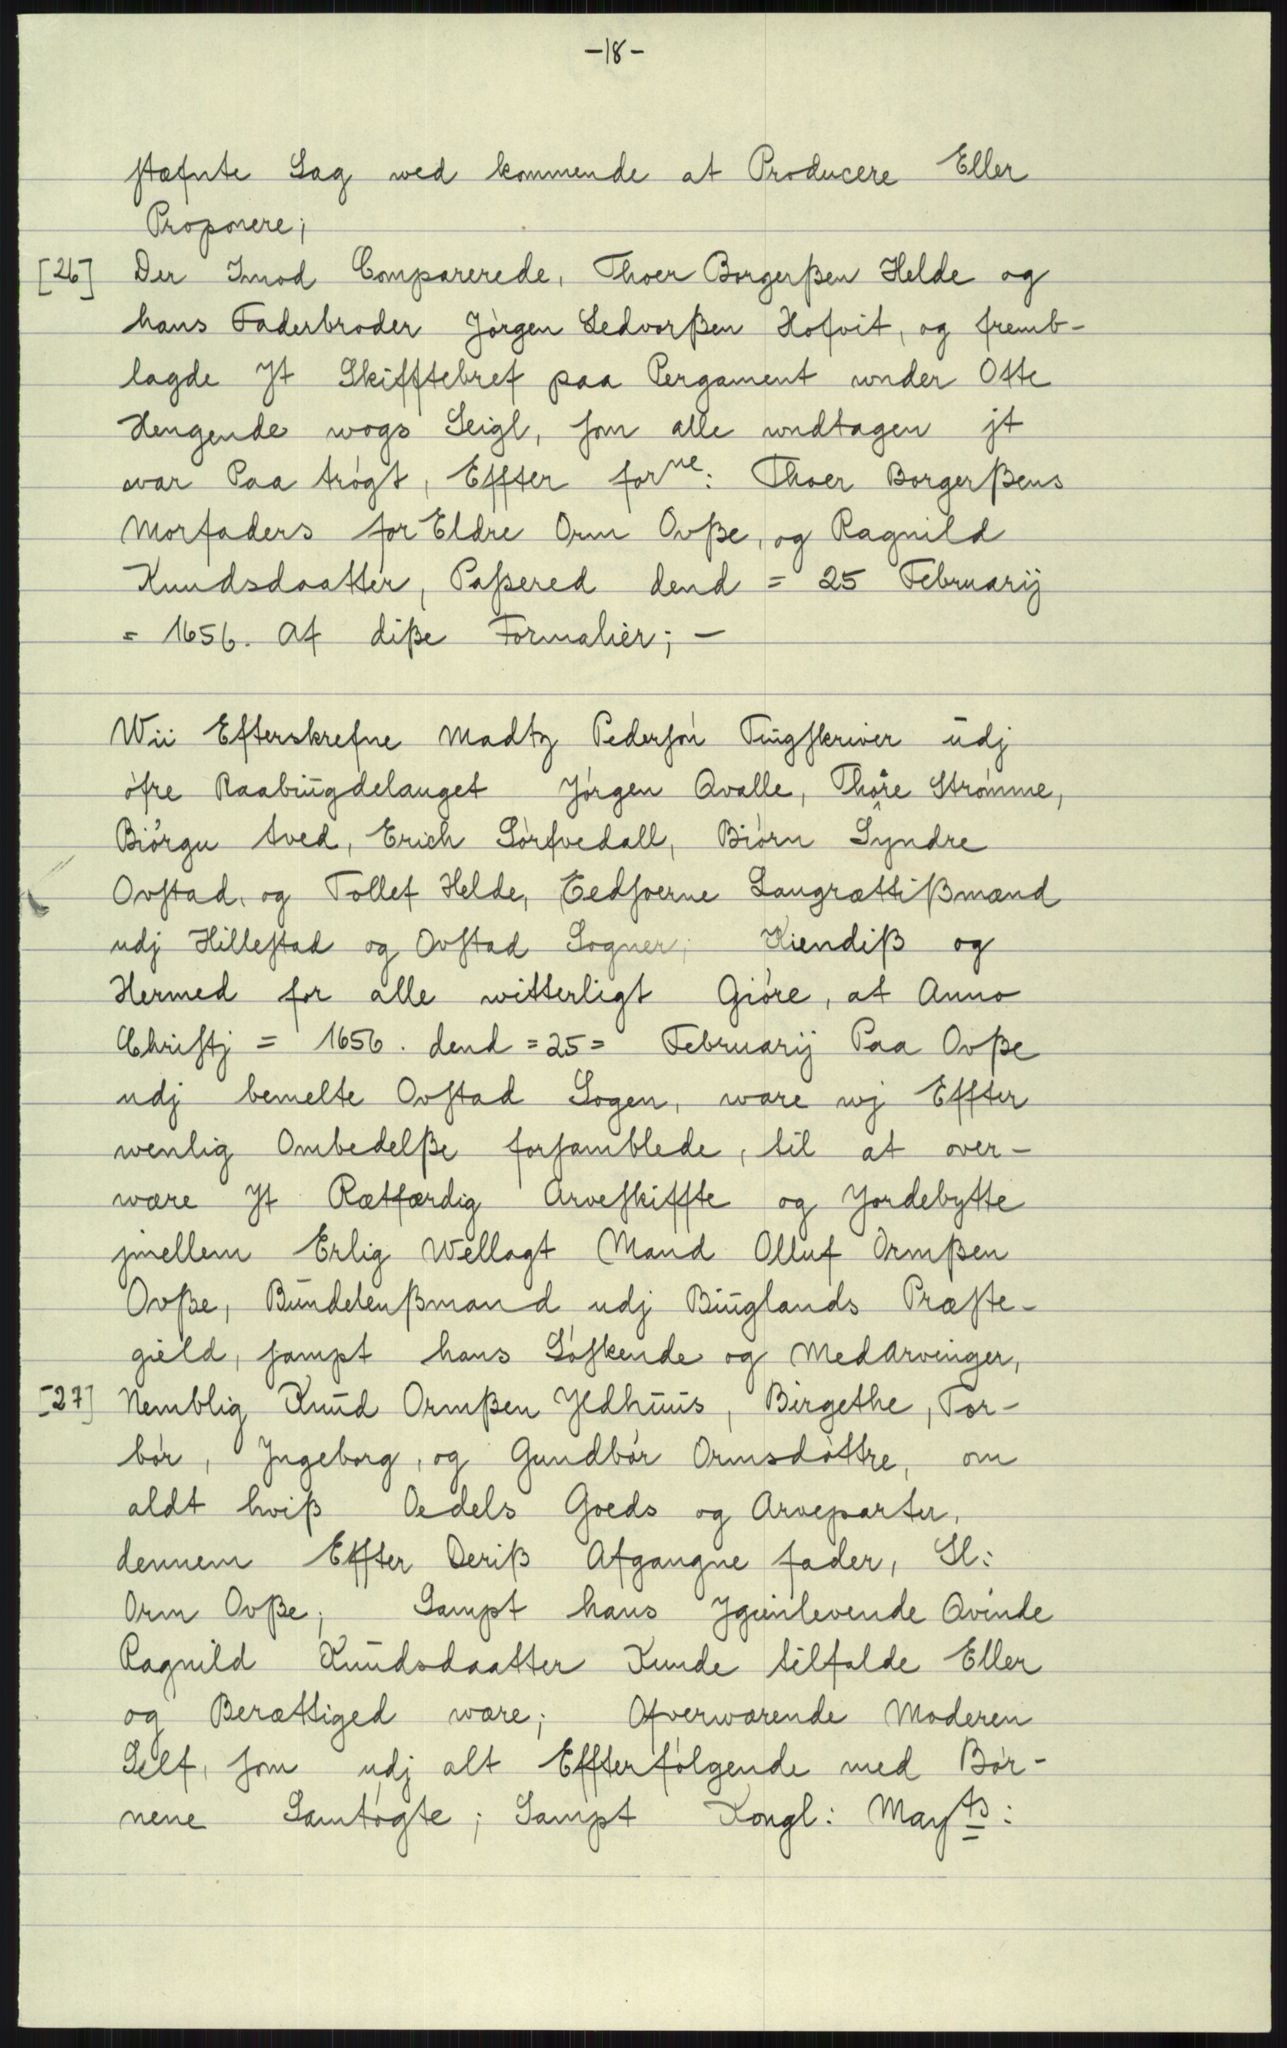 -18-
stæfnte Sag wed kommende at Producere Eller
Proponere;
[26] Der Imod Comparerede, Thoer Borgerßen Helde og
hans Faderbroder Jórgen Sedvorßen Hofvit, og fremb-
lagde Jt Skifftebref paa Pergament wnder Otte
Hengende wogs Seigl, som alle wndtagen jt
war Paa trógt, Effter forne: Thoer Borgerßens
Morfaders forEldre Orm Ovße, og Ragnild
Knudsdaatter, Paßered dend = 25 Februarij
= 1656. Af diße Formalier; -
Wii Efterskrefne Madtz Pedersón Tingskriver ŭdj
ófre Raabiŭgdelauget Jórgen Qvalle, Thore Strómme,
Biórgu tved, Erich Sórfvedall, Biórn Syndre
Ovstad, og Tollef Helde, Eedsoerne Laugrættißmænd
udj Hillestad og Ovstad Sogner, Kiendiß og
Hermed for alle witterligt Gióre, at Anno
Christj = 1656. dend =25= Februarij Paa Ovße
udj bemelte Ovstad Sogen, ware wj Effter
wenlig Ombedelße forsamblede, til at over-
wære Jt Rætfærdig Arveskiffte og Jordebytte
jmellem Erlig Wellagt Mand Olluf Ormßen
Ovße, Bŭndelenßmand udj Biŭglands Præste-
gield, sampt hans Sóskende og MedArvinger,
[27] Nemblig Knŭd Ormßen Jldhŭŭs, Birgethe, Tor-
bór, Jngeborg, og Gundbór Ormsdóttre, om
aldt hviß Oedels Goeds og Arveparter,
dennem Effter Deriß Afgangne fader, Sl:
Orm Ovße; Sampt hans Jgienlevende Qvinde
Ragnild Knŭdsdaatter Kunde tilfalde Eller
og Berættiged wære; Ofverwærende Moderen
Self, som udj alt Effterfólgende med Bór-
nene Samtógte; Sampt Kongl: Mayts: